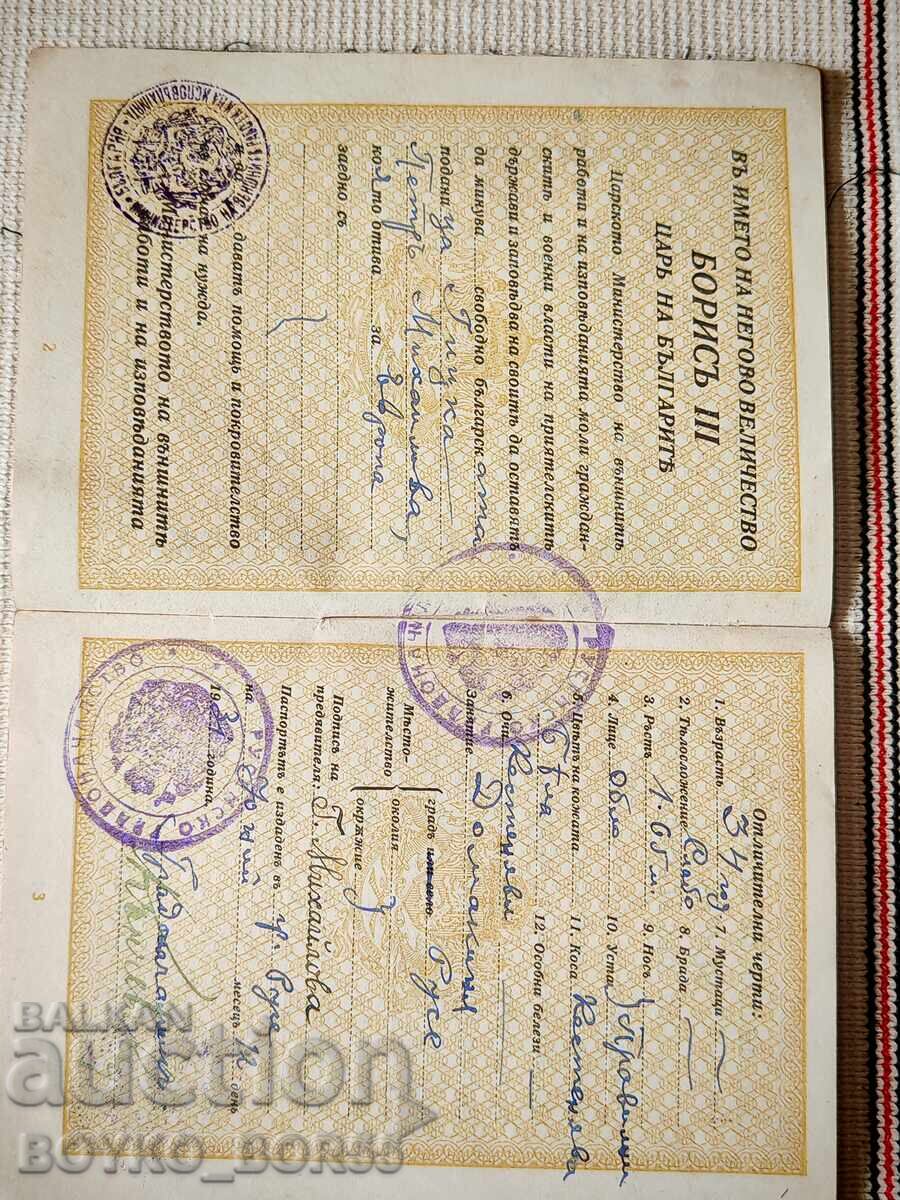 ВЪ ИМЕТО НА НЕГОВО ВЕЛИЧЕСТВО
БОРИСЪ III
ЦАРЬ НА БЪЛГАРИТѢ
Царското Министерство на външнитѣ
работи и на изповѣданията моли граждан-
скитѣ и военни власти на приятелскитѣ
държави и заповѣдва на своитѣ да оставятъ
да минува свободно българската
подани ца Гицка
Петръ Михайлова,
която отива за Европа
заедно съ
и да ѝ даватъ помощь и покровителство
на нужда.
Министерството на външнитѣ
работи и на изповѣданията
2
Отличителни черти:
1. Възрасть 34 год 7. Мустаци —
2. Тѣлосложение Слабо 8. Брада —
3. Рость 1.65 м. 9. Носъ } Правилни
4. Лице Обло 10. Уста
5. Цвѣтъ на кожата Бѣла 11. Коса Кестеняви
6. Очи Кестеняви 12. Особни белези —
Занятие Домакиня
Мѣсто-
жителство
градъ или село Русе
околия
окръжие
Подпись на
предявителя: Г. Михайлова
Паспортътъ е издаденъ въ гр. Русе
на месецъ день
19 година
Градоначалникъ:
РУСЕНСКО ГРАДОНАЧАЛСТВО
3
BALKAN
auction
BOYKO_BORS68